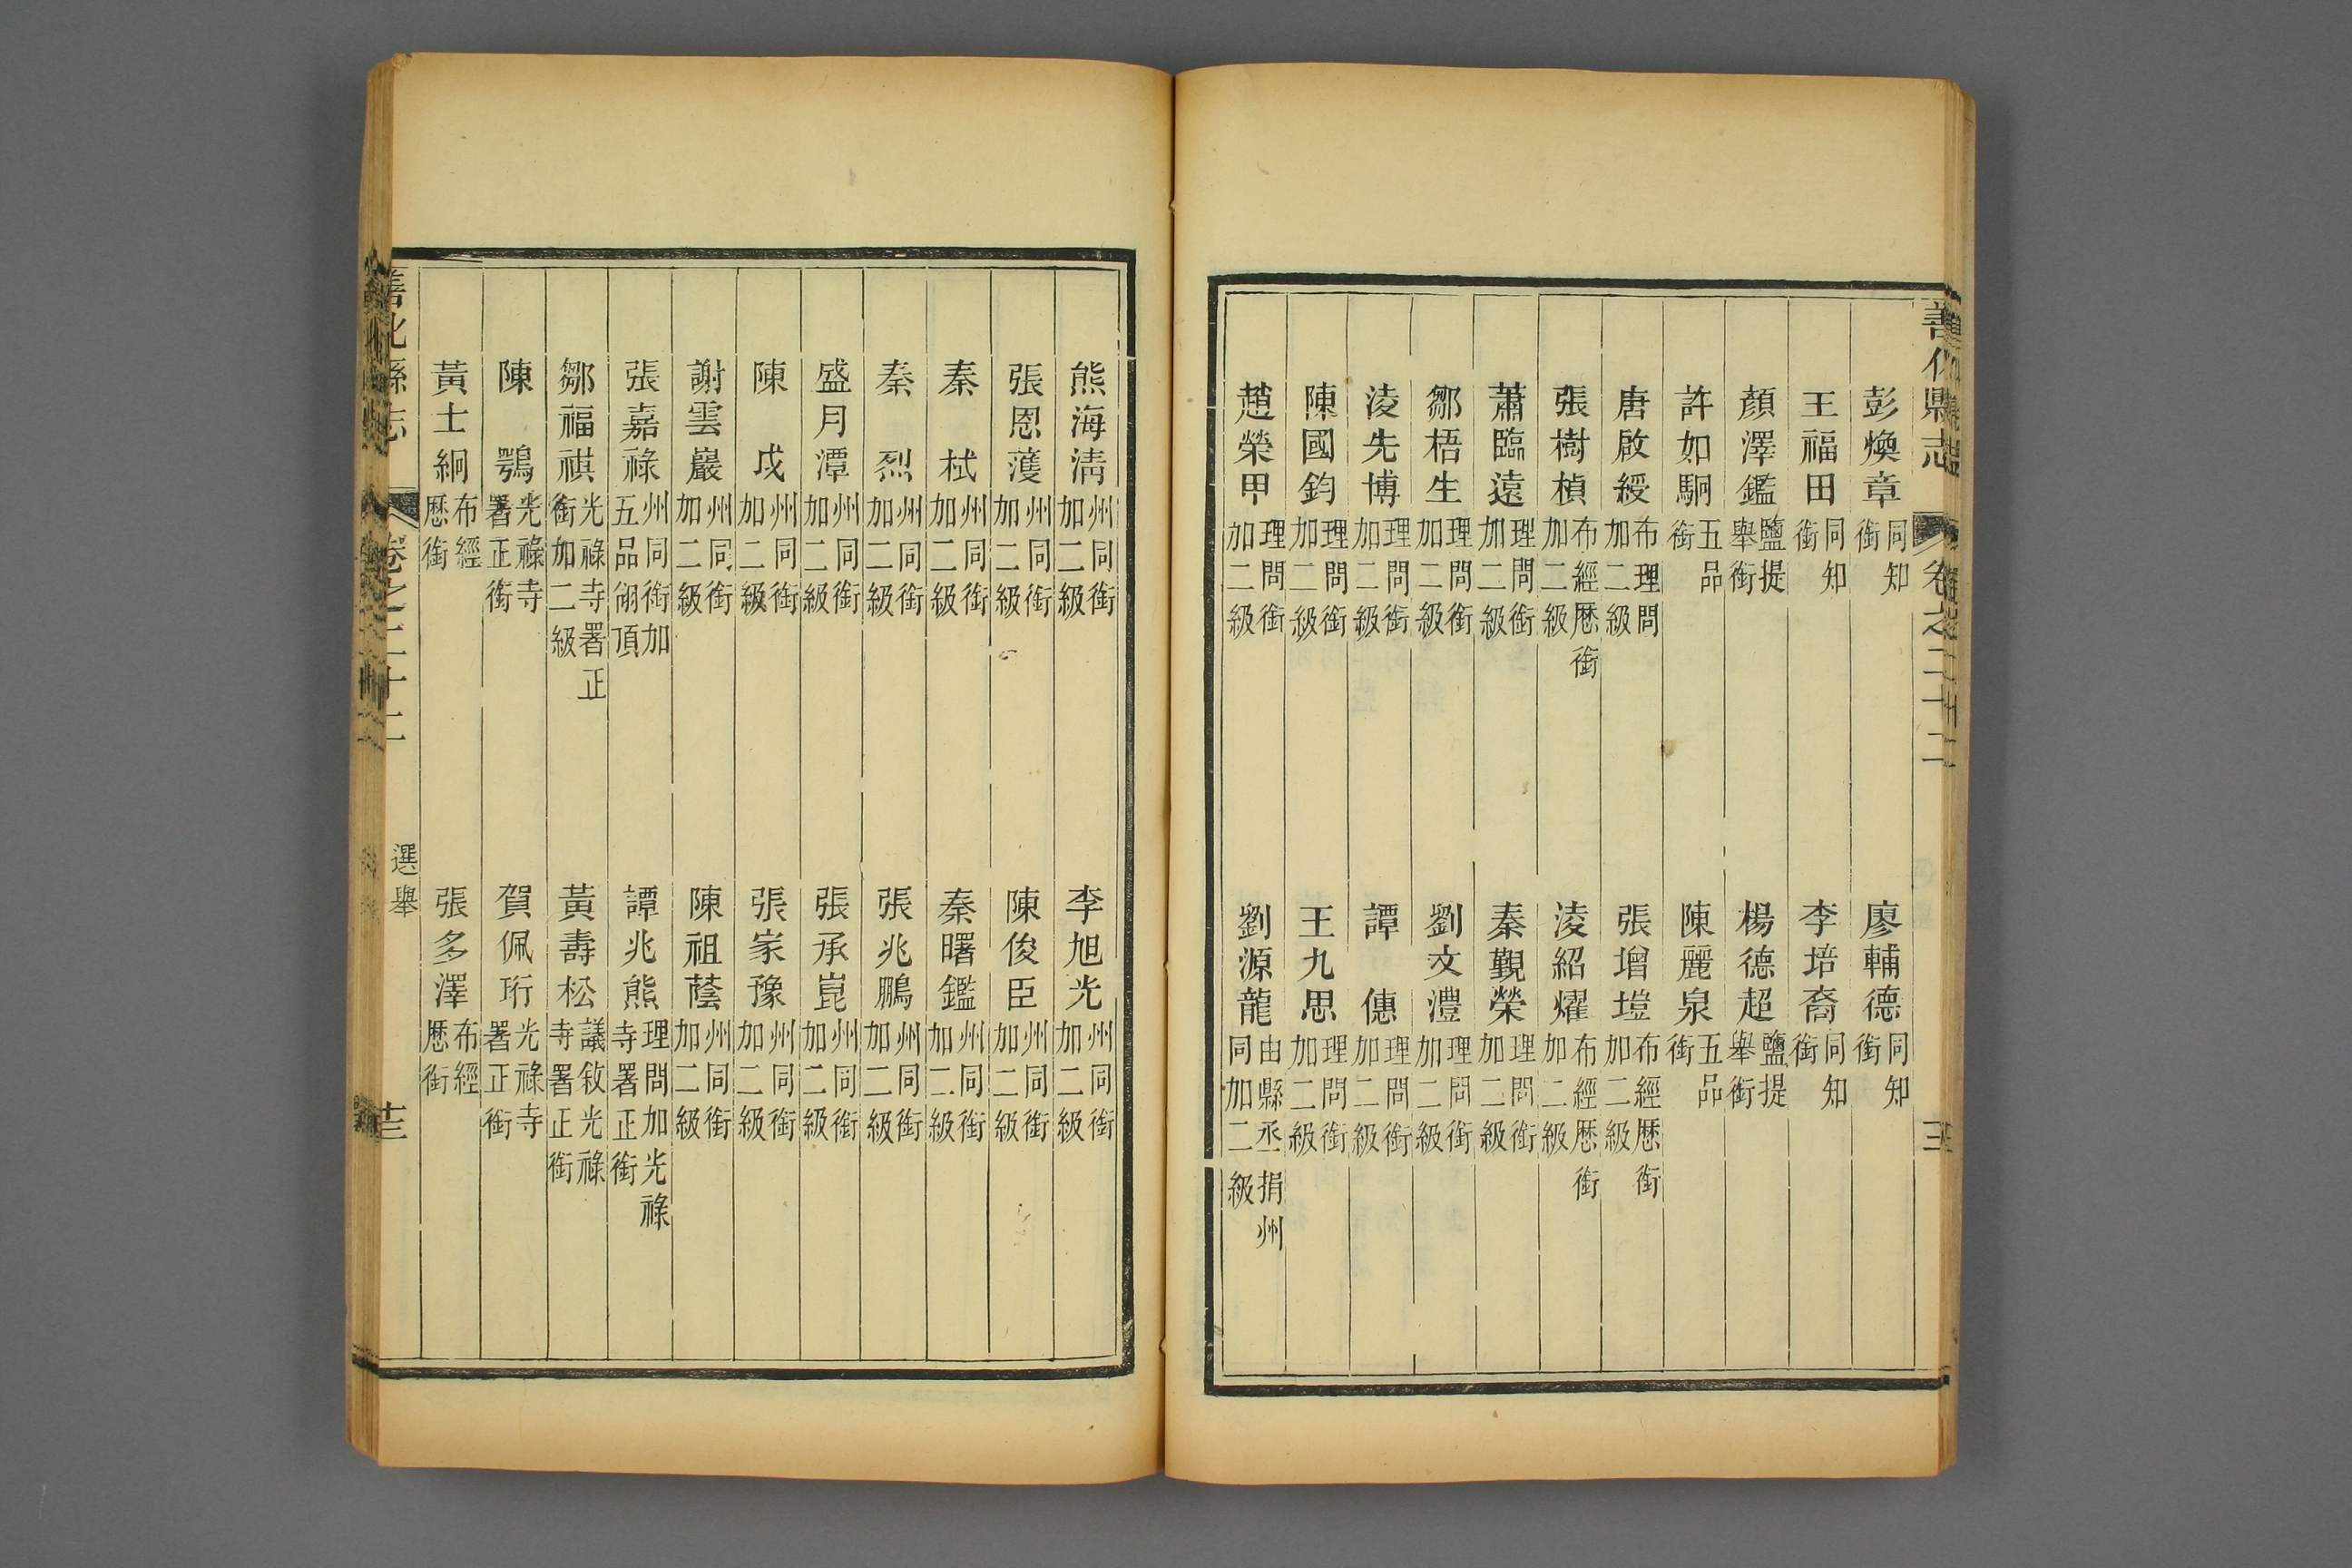 善化縣志 卷之二十二
彭煥章 同知銜 廖輔德 同知銜
王福田 同知銜 李培裔 同知銜
顏澤鑑 鹽提舉銜 楊德超 鹽提舉銜
許如駉 五品銜 陳麗泉 五品銜
唐啟綬 布理問加二級 張增塏 布經歷銜加二級
張樹楨 布經歷銜加二級 淩紹燿 布經歷銜加二級
蕭臨遠 理問銜加二級 秦覲榮 理問銜加二級
鄒梧生 理問銜加二級 劉文澧 理問銜加二級
淩先博 理問銜加二級 譚僡 理問銜加二級
陳國鈞 理問銜加二級 王九思 理問銜加二級
趙榮甲 理問銜加二級 劉源龍 由縣丞捐州同加二級
熊海清 州同銜加二級 李旭光 州同銜加二級
張恩濩 州同銜加二級 陳俊臣 州同銜加二級
秦栻 州同銜加二級 秦曙鑑 州同銜加二級
秦烈 州同銜加二級 張兆鵬 州同銜加二級
盛月潭 州同銜加二級 張承崑 州同銜加二級
陳戍 州同銜加二級 張家豫 州同銜加二級
謝雲巖 州同銜加二級 陳祖蔭 州同銜加二級
張嘉祿 州同銜加五品翎頂 譚兆熊 理問加光祿寺署正銜
鄒福祺 光祿寺署正銜加二級 黃壽松 議敘光祿寺署正銜
陳鶚 光祿寺署正銜 賀佩珩 光祿寺署正銜
黃士絅 布經歷銜 張多澤 布經歷銜
善化縣志 卷之二十二 選舉